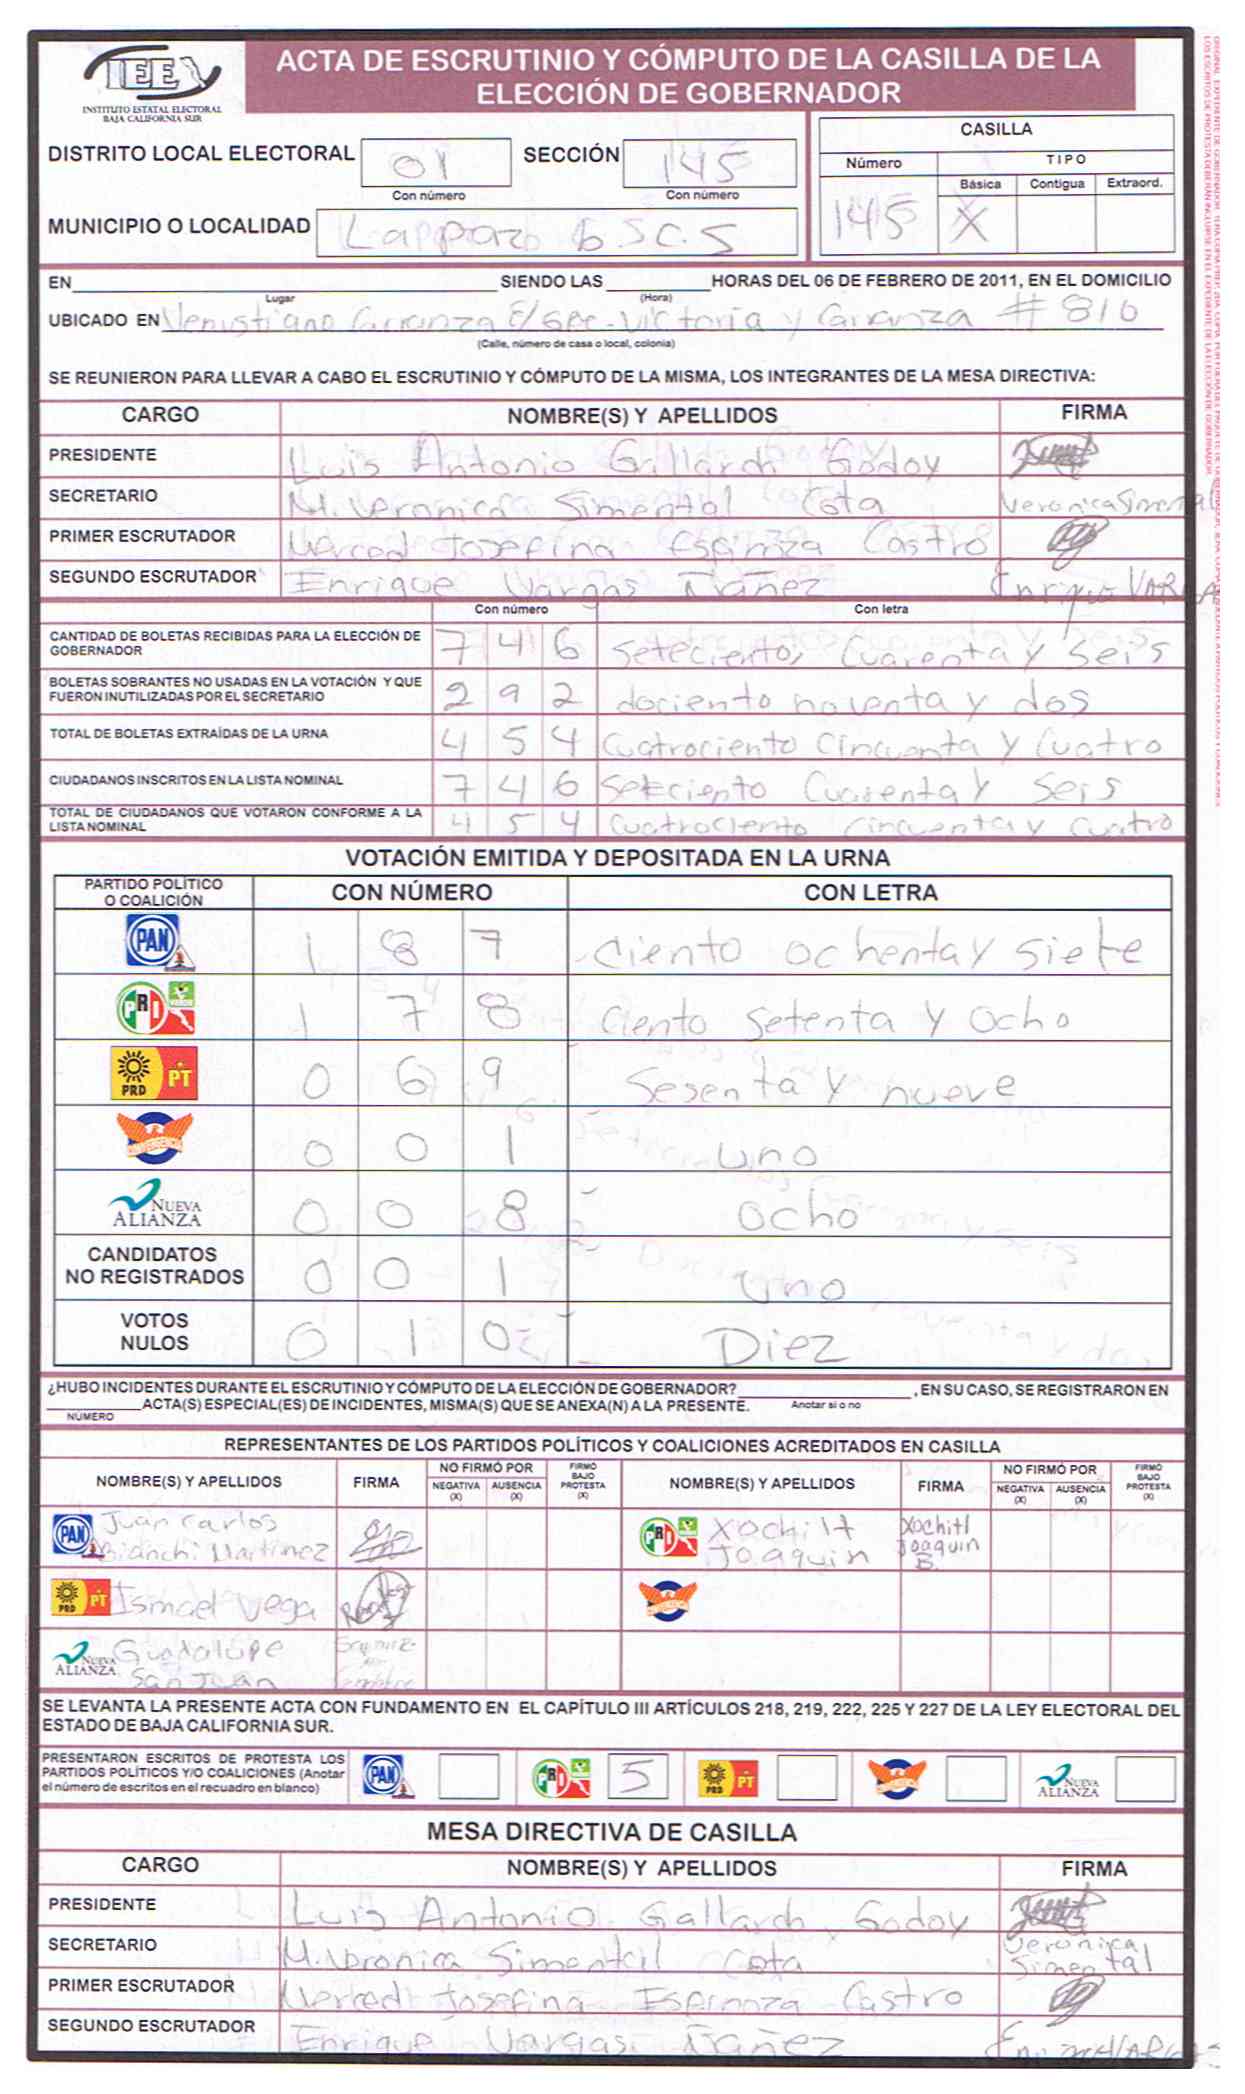 IEEX
INSTITUTO ESTATAL ELECTORAL
BAJA CALIFORNIA SUR
ACTA DE ESCRUTINIO Y CÓMPUTO DE LA CASILLA DE LA
ELECCIÓN DE GOBERNADOR
DISTRITO LOCAL ELECTORAL 01 SECCIÓN 145
Con número Con número
MUNICIPIO O LOCALIDAD Lappazo b.s.c.s
CASILLA
Número TIPO
Básica Contigua Extraord.
145 X
EN SIENDO LAS HORAS DEL 06 DE FEBRERO DE 2011, EN EL DOMICILIO
Lugar (Hora)
UBICADO EN Venustiano Carranza e/ Gpe. Victoria y Carranza # 810
(Calle, número de casa o local, colonia)
SE REUNIERON PARA LLEVAR A CABO EL ESCRUTINIO Y CÓMPUTO DE LA MISMA, LOS INTEGRANTES DE LA MESA DIRECTIVA:
CARGO NOMBRE(S) Y APELLIDOS FIRMA
PRESIDENTE Luis Antonio Gallardo Godoy
SECRETARIO M. Veronica Simental Cota Veronica Simental
PRIMER ESCRUTADOR Merced Josefina Espinoza Castro
SEGUNDO ESCRUTADOR Enrique Vargas Ñañez Enrique VARGAS
Con número Con letra
CANTIDAD DE BOLETAS RECIBIDAS PARA LA ELECCIÓN DE
GOBERNADOR 7 4 6 setecientos cuarenta y seis
BOLETAS SOBRANTES NO USADAS EN LA VOTACIÓN Y QUE
FUERON INUTILIZADAS POR EL SECRETARIO 2 9 2 dociento noventa y dos
TOTAL DE BOLETAS EXTRAÍDAS DE LA URNA 4 5 4 cuatrociento cincuenta y cuatro
CIUDADANOS INSCRITOS EN LA LISTA NOMINAL 7 4 6 Seteciento Cuarenta y Seis
TOTAL DE CIUDADANOS QUE VOTARON CONFORME A LA
LISTA NOMINAL 4 5 4 cuatrociento cincuenta y cuatro
VOTACIÓN EMITIDA Y DEPOSITADA EN LA URNA
PARTIDO POLÍTICO
O COALICIÓN CON NÚMERO CON LETRA
PAN 1 8 7 ciento ochenta y siete
PRI VERDE 1 7 8 ciento setenta y ocho
PRD PT 0 6 9 Sesenta y nueve
CONVERGENCIA 0 0 1 uno
NUEVA ALIANZA 0 0 8 ocho
CANDIDATOS
NO REGISTRADOS 0 0 1 uno
VOTOS
NULOS 0 1 0 Diez
¿HUBO INCIDENTES DURANTE EL ESCRUTINIO Y CÓMPUTO DE LA ELECCIÓN DE GOBERNADOR? , EN SU CASO, SE REGISTRARON EN
ACTA(S) ESPECIAL(ES) DE INCIDENTES, MISMA(S) QUE SE ANEXA(N) A LA PRESENTE. Anotar si o no
NÚMERO
REPRESENTANTES DE LOS PARTIDOS POLÍTICOS Y COALICIONES ACREDITADOS EN CASILLA
NOMBRE(S) Y APELLIDOS FIRMA NO FIRMÓ POR NEGATIVA (X) AUSENCIA (X) FIRMÓ BAJO PROTESTA (X) NOMBRE(S) Y APELLIDOS FIRMA NO FIRMÓ POR NEGATIVA (X) AUSENCIA (X) FIRMÓ BAJO PROTESTA (X)
PAN Juan Carlos
Bianchi Martinez
PRI VERDE Xochilt
Joaquin
Xochitl
Joaquin
B.
PRD PT Ismael Vega
NUEVA ALIANZA Guadalupe
San Juan
SE LEVANTA LA PRESENTE ACTA CON FUNDAMENTO EN EL CAPÍTULO III ARTÍCULOS 218, 219, 222, 225 Y 227 DE LA LEY ELECTORAL DEL
ESTADO DE BAJA CALIFORNIA SUR.
PRESENTARON ESCRITOS DE PROTESTA LOS
PARTIDOS POLÍTICOS Y/O COALICIONES (Anotar
el número de escritos en el recuadro en blanco)
PAN PRI 5 PRD PT NUEVA ALIANZA
MESA DIRECTIVA DE CASILLA
CARGO NOMBRE(S) Y APELLIDOS FIRMA
PRESIDENTE Luis Antonio Gallardo Godoy
SECRETARIO M. Veronica Simental Cota Veronica Simental
PRIMER ESCRUTADOR Merced Josefina Espinoza Castro
SEGUNDO ESCRUTADOR Enrique Vargas Ñañez